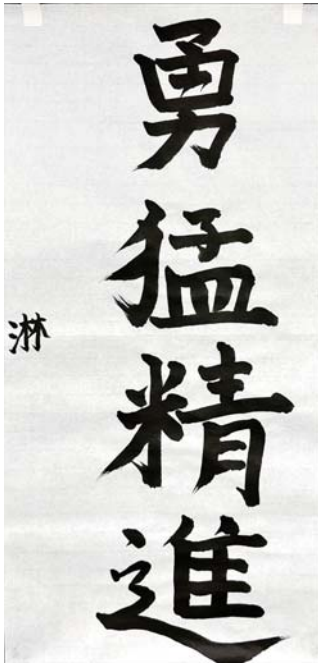 勇猛精進
淋